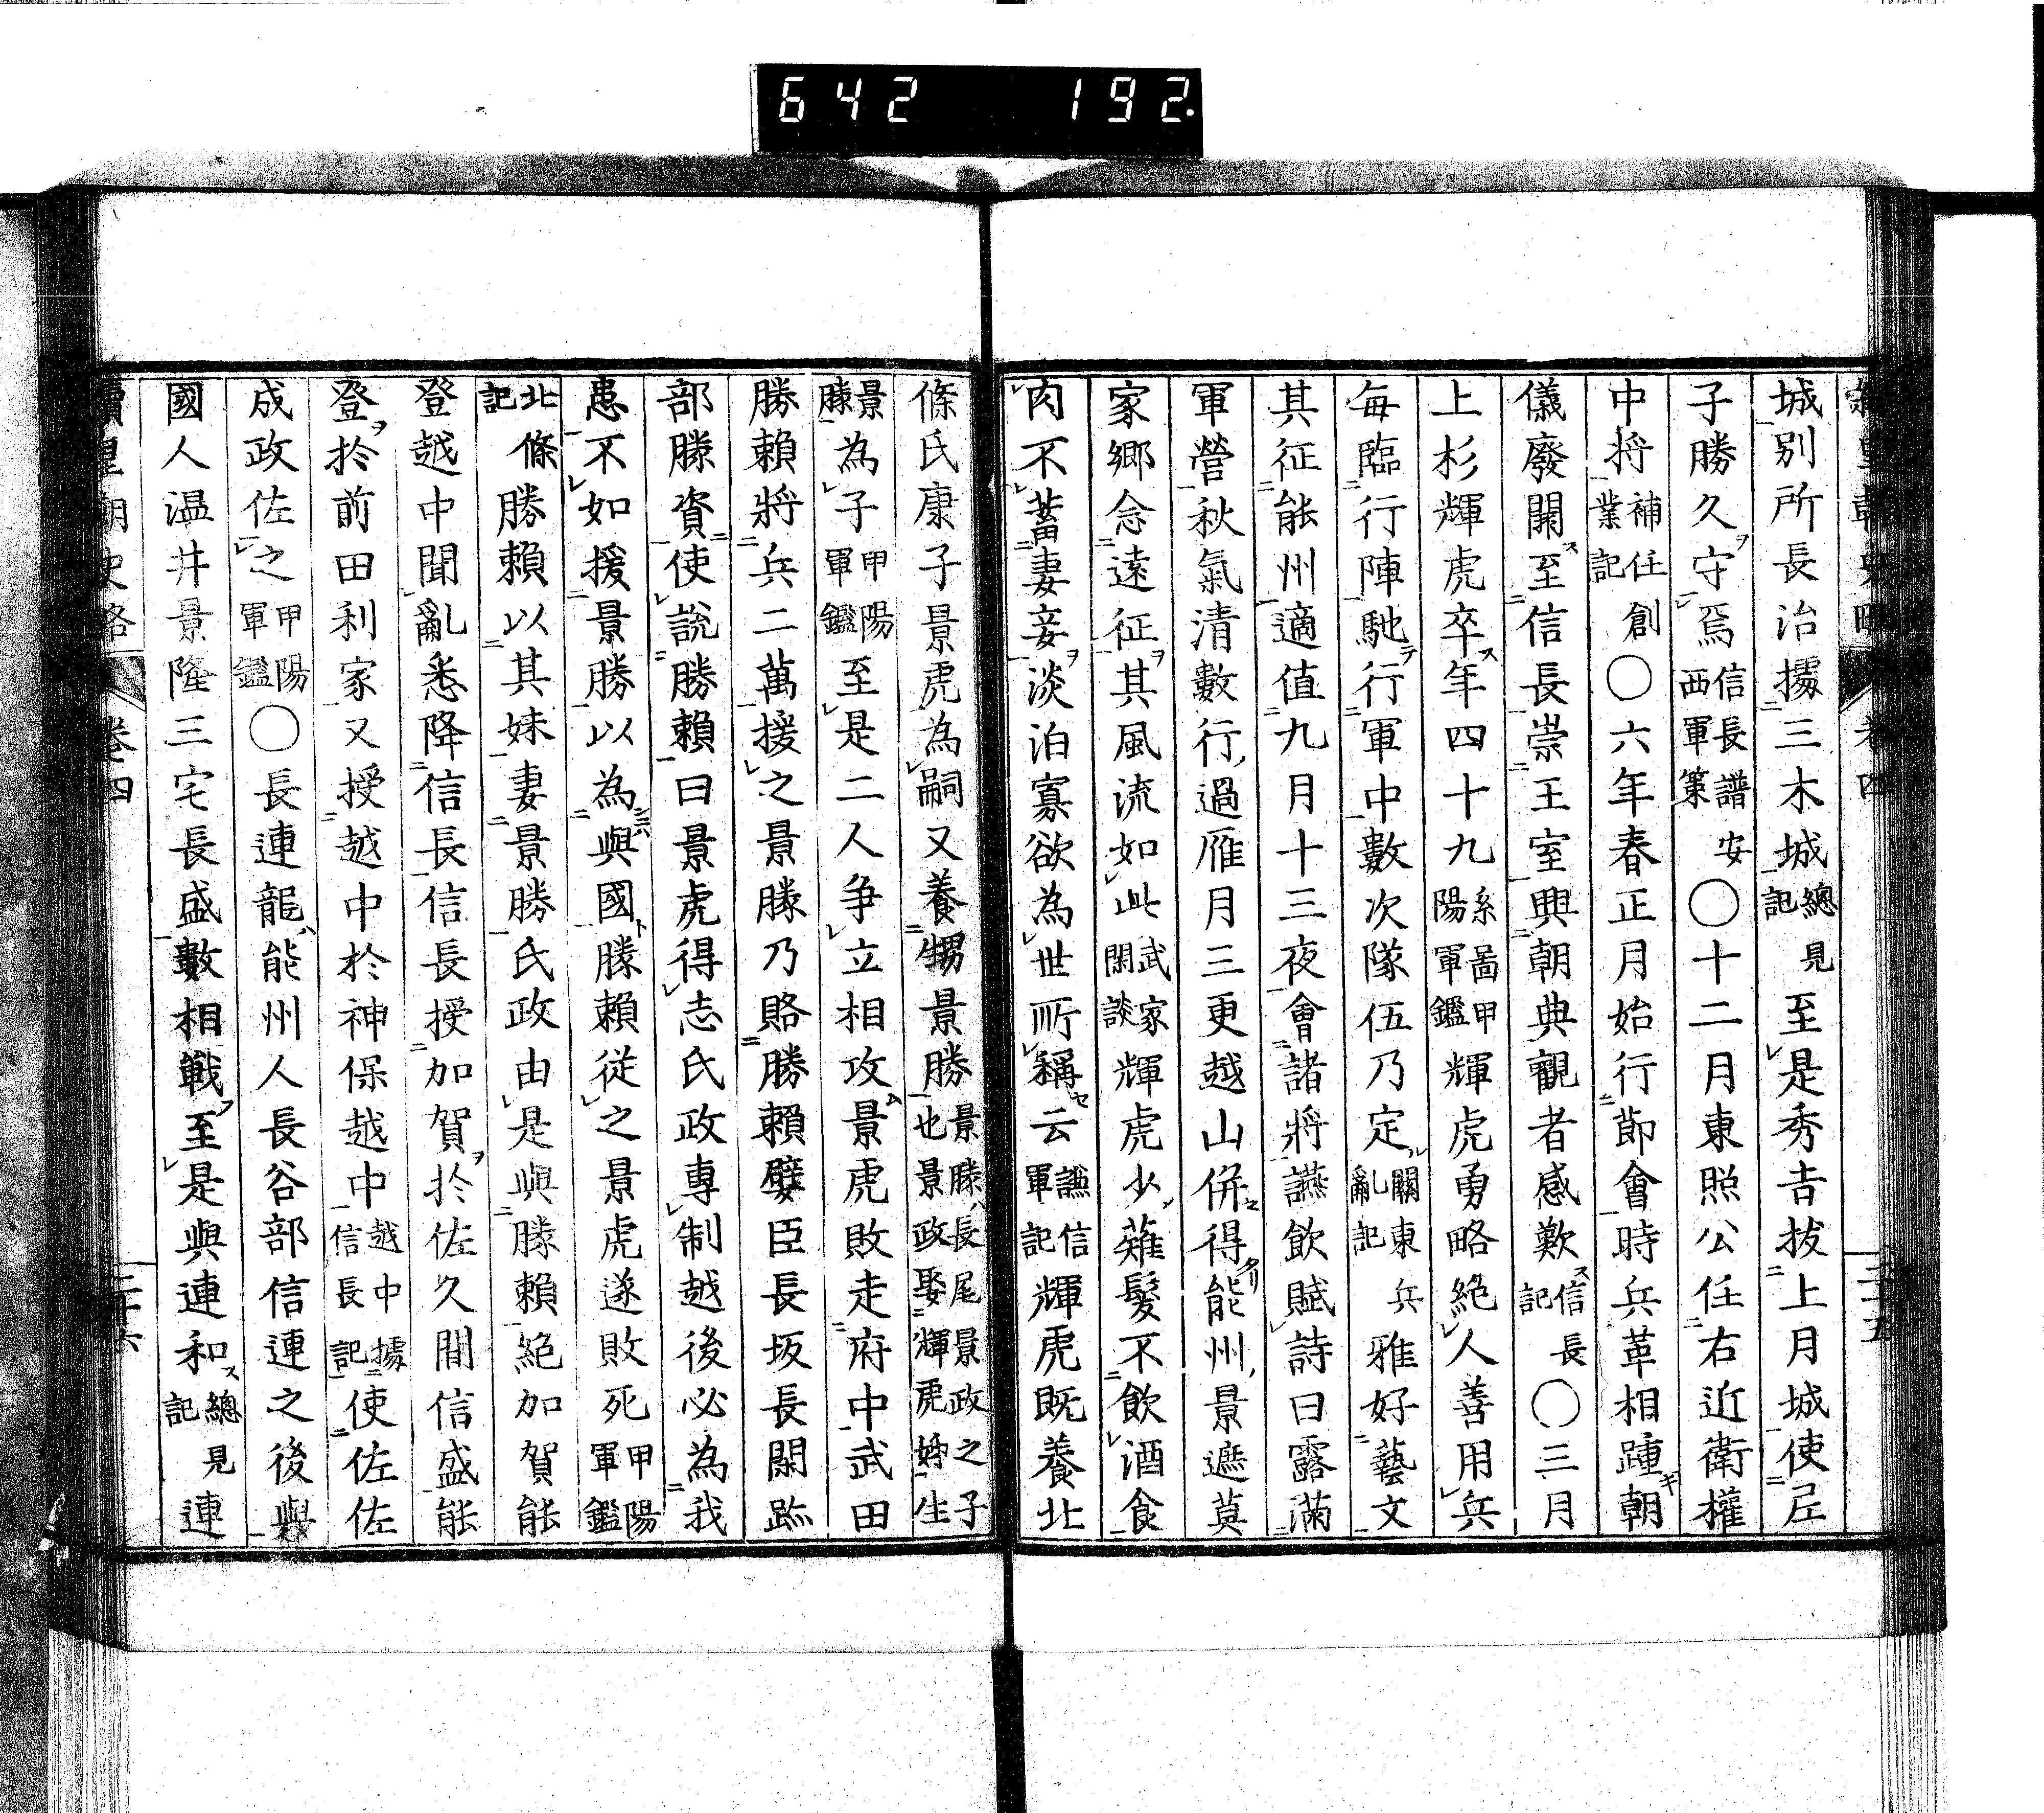 642 192.
城別所長治據三木城總見記至是秀吉拔上月城使尼
子勝久守焉信長譜安西軍策〇十二月東照公任右近衛權
中将補任創業記〇六年春正月始行節會時兵革相踵朝
儀廢闕至信長崇王室興朝典觀者感歎信長記〇三月
上杉輝虎卒年四十九系圖甲陽軍鑑輝虎勇略絶人善用兵
每臨行陣馳行軍中數次隊伍乃定關東兵亂記雅好藝文
其征能州適值九月十三夜會諸將讌飲賦詩曰露滿
軍營秋氣清數行過雁月三更越山併得能州景遮莫
家鄉念遠征其風流如此武家閑談輝虎少薙髮不飲酒食
肉不蓄妻妾淡泊寡欲為世所稱云謙信軍記輝虎既養北
條氏康子景虎為嗣又養甥景勝景勝長尾景政之子也景政娶輝虎姊生
景勝為子甲陽軍鑑至是二人争立相攻景虎敗走府中武田
勝賴將兵二萬援之景勝乃賂勝賴嬖臣長坂長閑跡
部勝資使說勝賴曰景虎得志氏政專制越後必為我
患不如援景勝以為與國勝賴從之景虎遂敗死甲陽軍鑑
北條記勝賴以其妹妻景勝氏政由是與勝賴絶加賀能
登越中聞亂悉降信長信長授加賀於佐久間信盛能
登於前田利家又授越中於神保越中越中據信長記使佐佐
成政佐之甲陽軍鑑〇長連龍能州人長谷部信連之後與
國人温井景隆三宅長盛數相戰至是與連和總見記連
續皇朝史略 卷四 二十六